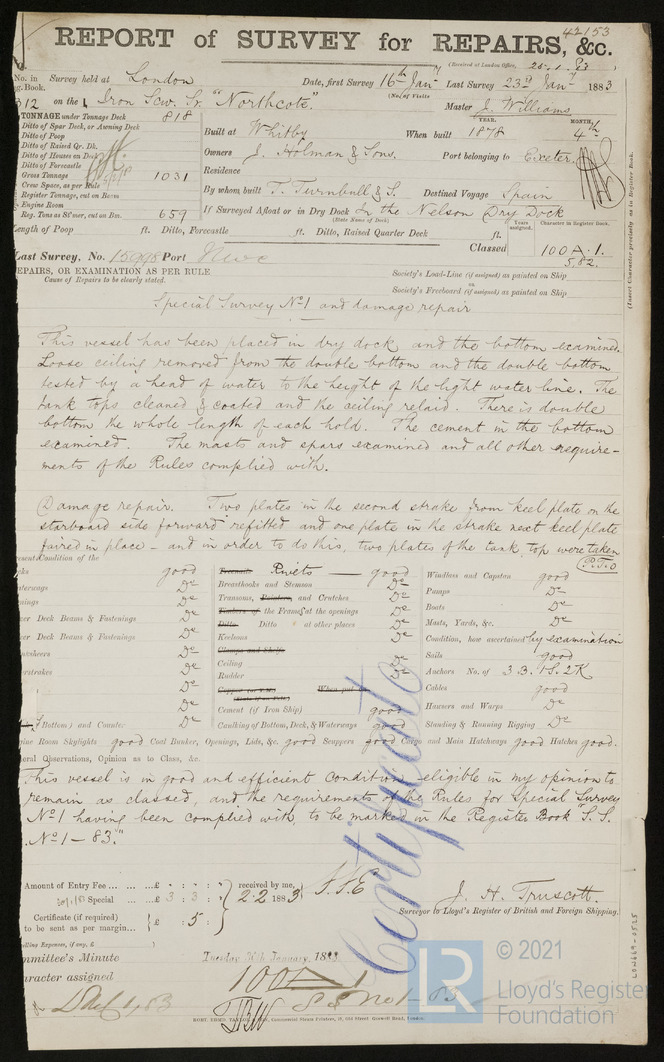 42153
REPORT of SURVEY for REPAIRS, &c.
(Received at London Office, 25.1.83)
No. in Survey held at London Date, first Survey 16th Jany Last Survey 23rd Jany 1883
g. Book. (No. of Visits
312 on the Iron Scw. Sr. "Northcote". Master J. Williams
TONNAGE under Tonnage Deck 818
Ditto of Spar Deck, or Awning Deck
Ditto of Poop
Ditto of Raised Qr. Dk.
Ditto of Houses on Deck
Ditto of Forecastle
Gross Tonnage 1031
Crew Space, as per Rule
Register Tonnage, cut on Beam
Engine Room
Reg. Tons as St'mer, cut on Bm. 659
YEAR. MONTH.
Built at Whitby When built 1878 4th
Owners J. Holman & Sons. Port belonging to Exeter.
Residence
By whom built T. Turnbull & S. Destined Voyage Spain
If Surveyed Afloat or in Dry Dock In the Nelson Dry Dock
(State Name of Dock)
Length of Poop ft. Ditto, Forecastle ft. Ditto, Raised Quarter Deck ft.
Years assigned. Character in Register Book.
Classed 100 A. 1.
5.82.
(Insert Character precisely as in Register Book.
Last Survey, No. 15998 Port Nwc
REPAIRS, OR EXAMINATION AS PER RULE
Cause of Repairs to be clearly stated.
Society's Load-Line (if assigned) as painted on Ship
or
Society's Freeboard (if assigned) as painted on Ship
Special Survey No 1 and damage repair
This vessel has been placed in dry dock and the bottom examined.
Loose ceiling removed from the double bottom and the double bottom
tested by a head of water to the height of the light water line. The
tank tops cleaned & coated and the ceiling relaid. There is double
bottom the whole length of each hold. The cement in the bottom
examined. The masts and spars examined and all other require-
ments of the Rules complied with.
Damage repair. Two plates in the second strake from keel plate on the
starboard side forward refitted and one plate in the strake next keel plate
faired in place - and in order to do this, two plates of the tank top were taken
P.T.O
Present Condition of the
good
De
De
er Deck Beams & Fastenings De
er Deck Beams & Fastenings De
De
De
De
De
Bottom) and Counter De
Treenails Rivets good
Breasthooks and Stemson De
Transoms, Pointers, and Crutches De
Timbers of the Frames at the openings De
Ditto Ditto at other places De
Keelsons De
Clamps and Shelfs
Ceiling De
Rudder De
When put on
Cement (if Iron Ship) good
Caulking of Bottom, Deck, & Waterways good
Windlass and Capstan good
Pumps De
Boats De
Masts, Yards, &c. De
Condition, how ascertained by examination
Sails good
Anchors No. of 3 B. 1 S. 2 K
Cables good
Hawsers and Warps De
Standing & Running Rigging De
gine Room Skylights good Coal Bunker, Openings, Lids, &c. good Scuppers good Cargo and Main Hatchways good Hatches good.
eral Observations, Opinion as to Class, &c.
This vessel is in good and efficient condition eligible in my opinion to
remain as classed, and the requirements of the Rules for Special Survey
No 1 having been complied with, to be marked in the Register Book "S.S.
No 1 - 83."
Certificate
Amount of Entry Fee ... £ : :
Special ... £ 3 : 3 :
received by me,
2.2 1883
Certificate (if required)
to be sent as per margin... £ : 5 :
elling Expenses, if any, £
J. H. Truscott.
Surveyor to Lloyd's Register of British and Foreign Shipping.
mmittee's Minute Tuesday 30th January, 18
aracter assigned 100 A 1
S S No 1 - 83
LON669-0525
LR
© 2021
Lloyd's Register
Foundation